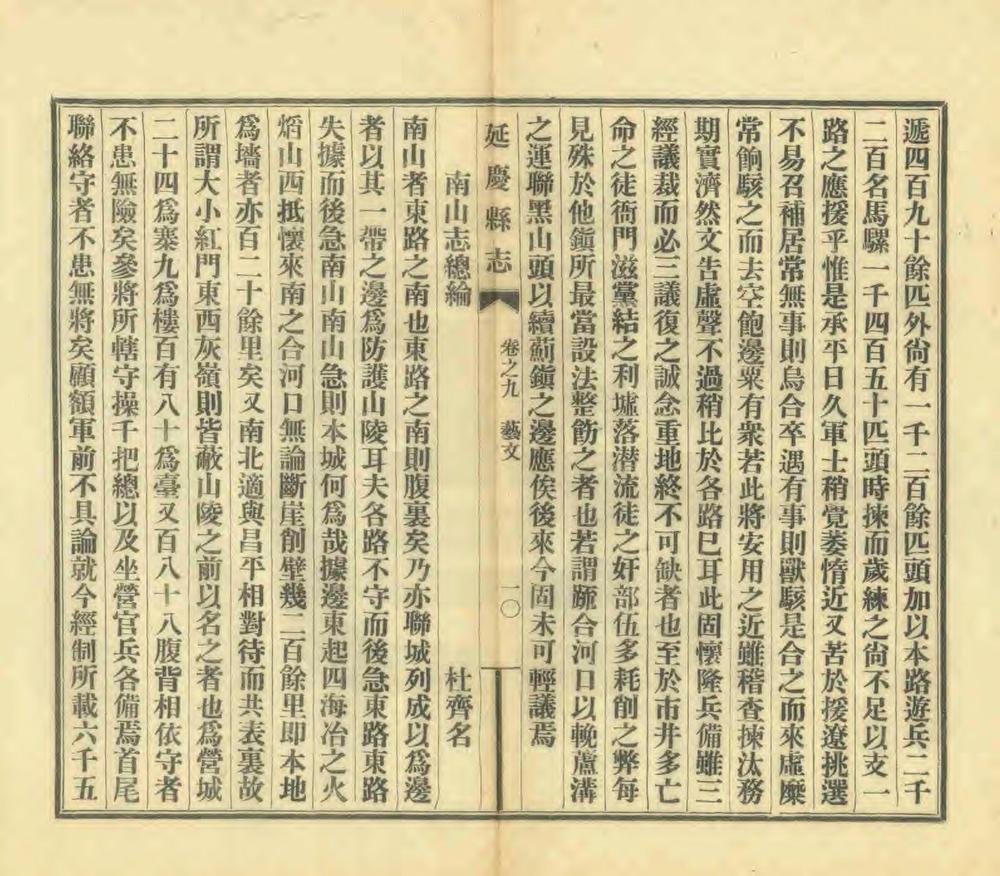 遞四百九十餘匹外尙有一千二百餘匹頭加以本路遊兵二千
二百名馬騾一千四百五十匹頭時揀而歲練之尙不足以支一
路之應援乎惟是承平日久軍士稍覺萎惰近又苦於援遼挑選
不易召補居常無事則烏合卒遇有事則獸駭是合之而來虛糜
常餉駭之而去空飽邊粟有衆若此將安用之近雖稽查揀汰務
期實濟然文告虛聲不過稍比於各路已耳此固懷隆兵備雖三
經議裁而必三議復之誠念重地終不可缺者也至於市井多亡
命之徒衙門滋黨結之利墟落潜流徒之奸部伍多耗削之弊每
見殊於他鎭所最當設法整飭之者也若謂蹠合河口以輓蘆溝
之運聯黑山頭以續薊鎭之邊應俟後來今固未可輕議焉
延慶縣志
卷之九 藝文
一〇
南山志總論
杜齊名
南山者東路之南也東路之南則腹裏矣乃亦聯城列戍以爲邊
者以其一帶之邊爲防護山陵耳夫各路不守而後急東路東路
失據而後急南山南山急則本城何爲哉據邊東起四海冶之火
焰山西抵懷來南之合河口無論斷崖削壁幾二百餘里即本地
爲墻者亦百二十餘里矣又南北適與昌平相對待而共表裏故
所謂大小紅門東西灰嶺則皆蔽山陵之前以名之者也爲營城
二十四爲寨九爲樓百有八十爲臺又百八十八腹背相依守者
不患無險矣參將所轄守操千把總以及坐營官兵各備焉首尾
聯絡守者不患無將矣顧額軍前不具論就今經制所載六千五